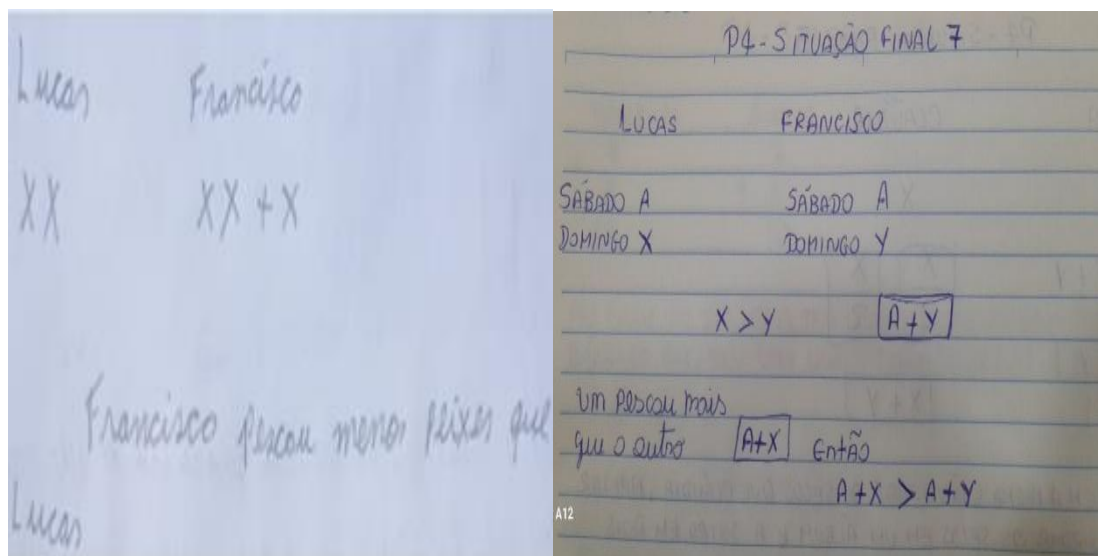 Lucas Francisco
XX XX + X
Francisco pescou menos peixes que
Lucas
P4 - SITUAÇÃO FINAL 7
LUCAS FRANCISCO
SÁBADO A SÁBADO A
DOMINGO X DOMINGO Y
X > Y A + Y
Um pescou mais
que o outro A+X ENTÃO
A+X > A+Y
A12